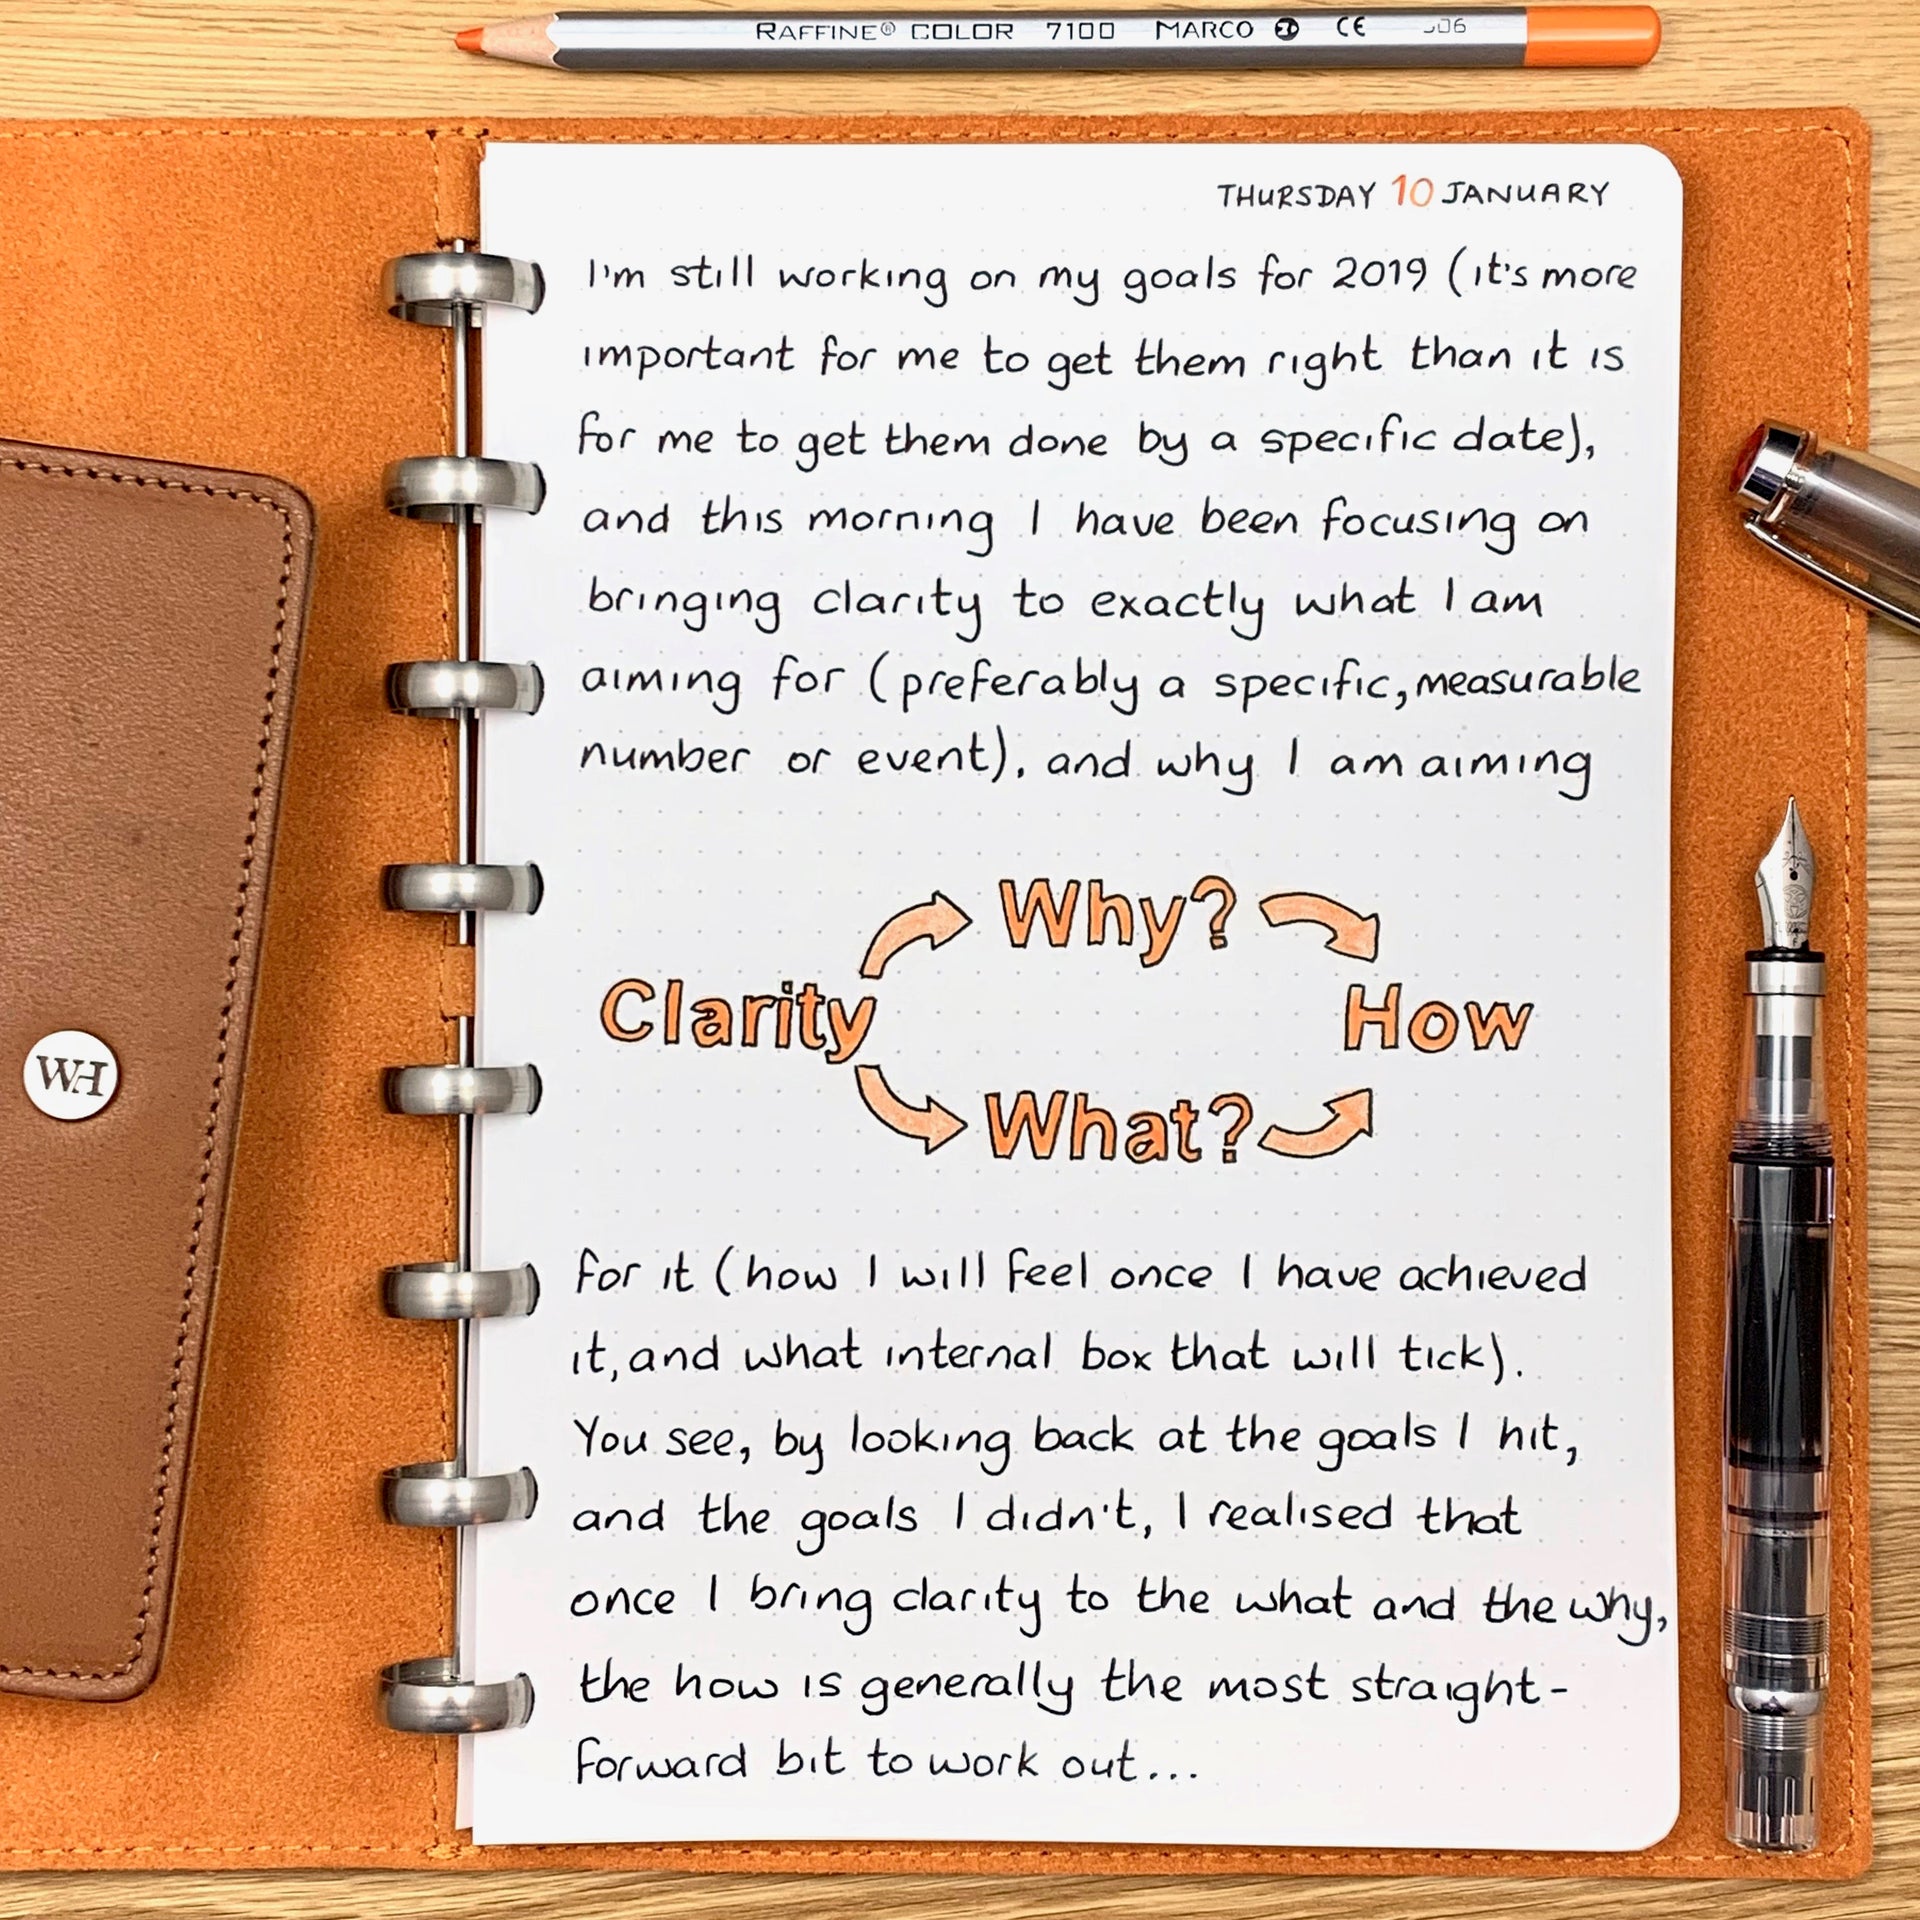 RAFFINE® COLOR 7100 MARCO CE
THURSDAY 10 JANUARY
I'm still working on my goals for 2019 (it's more
important for me to get them right than it is
for me to get them done by a specific date),
and this morning I have been focusing on
bringing clarity to exactly what I am
aiming for (preferably a specific, measurable
number or event), and why I am aiming
Why?
Clarity
How
What?
for it (how I will feel once I have achieved
it, and what internal box that will tick).
You see, by looking back at the goals I hit,
and the goals I didn't, I realised that
once I bring clarity to the what and the why,
the how is generally the most straight-
forward bit to work out...
WH